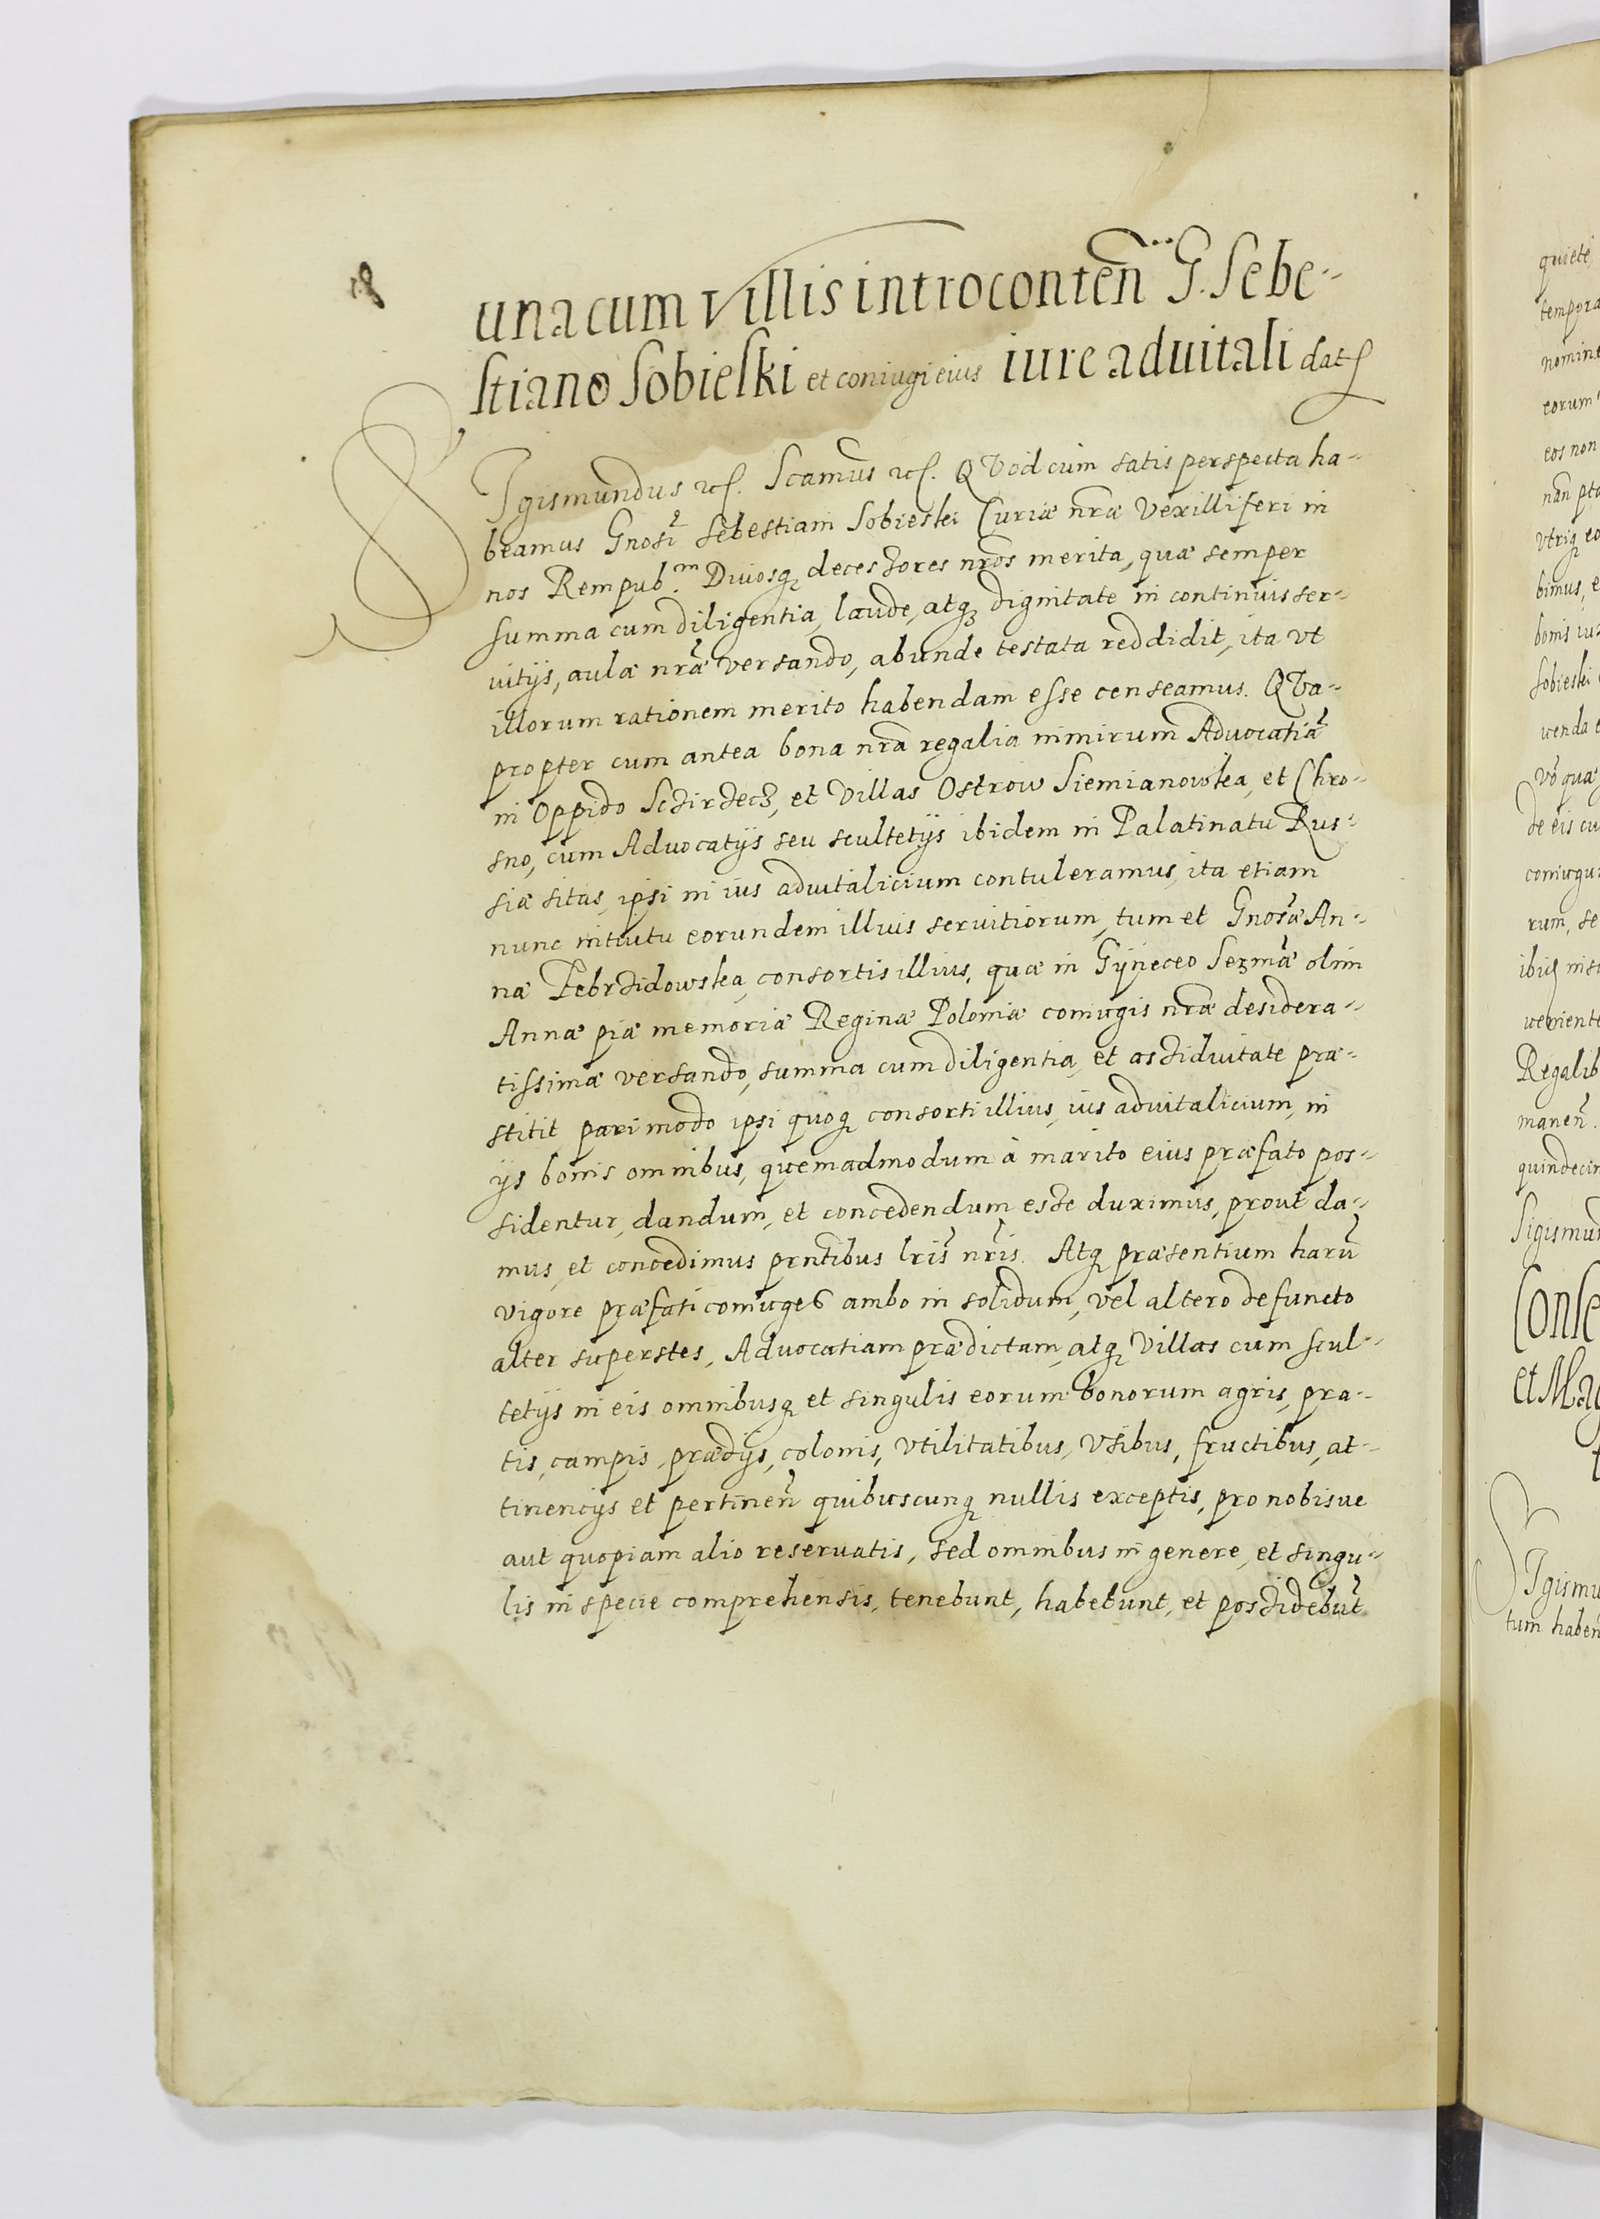 18
una cum Villis introconten̄ G. Sebe-
stiano Sobieski et coniugi eius iure advitali dat
SIgismundus etc. Scamus etc. QVod cum satis perspecta ha-
beamus Gnosi Sebestiani Sobieski Curiæ nr̃æ Vexilliferi in
nos Rempub.m Divosq decessores nr̃os merita, quæ semper
summa cum diligentia, laude, atq dignitate in continuis ser-
vitijs, aulæ nr̃æ versando, abunde testata reddidit, ita vt
illorum rationem merito habendam esse censeamus. QVa-
propter cum antea bona nr̃a regalia nimirum Advocatiã
in Oppido Sczirzecz, et Villas Ostrow Siemianowka, et Chro-
sno, cum Advocatijs seu scultetijs ibidem in Palatinatu Rus-
siæ sitas, ipsi in ius advitalicium contuleramus, ita etiam
nunc intuitu eorundem illius servitiorum, tum et Gnosæ An-
næ Zebrzidowska, consortis illius, quæ in Gÿneceo Sermæ olim
Annæ piæ memoriæ Reginæ Poloniæ coniugis nr̃æ desidera-
tissimæ versando, summa cum diligentia, et assiduitate præ-
stitit pari modo ipsi quoq consorti illius, ius advitalicium, in
ijs bonis omnibus, quemadmodum à marito eius præfato pos-
sidentur, dandum, et concedendum esse duximus, prout da-
mus, et concedimus prntibus lr̃is nr̃is. Atq præsentium harũ
vigore præfati coniuges ambo in solidum, vel altero defuncto
alter superstes, Advocatiam prædictam, atq Villas cum scul-
tetijs in eis omnibusq et singulis eorum bonorum agris, pra-
tis, campis, prædijs, colonis, vtilitatibus, vsibus, fructibus, at-
tinencijs et pertinen̄ quibuscunq nullis exceptis, pro nobisue
aut quopiam alio reservatis, sed omnibus in genere, et singu-
lis in specie comprehensis, tenebunt, habebunt, et possidebũt
quiete,
tempora
nomine
eorum
eos non
bimus, e
Sobieski
venda e
quæ
de eis cu
coniugu
rum, se
venient
Regalib
manen̄.
quindecim
Sigismun
Conse
et Mag
SIgismu
tum haben̄